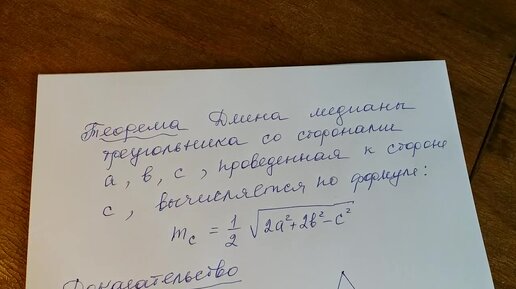 Теорема Длина медианы
треугольника со сторонами
a, b, c, проведенная к стороне
c, вычисляется по формуле:
m_c = 1/2 √(2a²+2b²-c²)
Доказательство